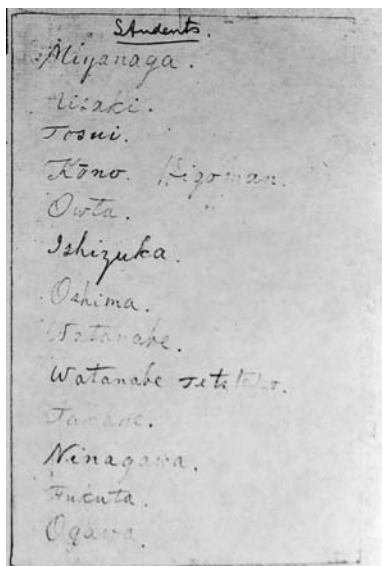 Students.
Miyanaga.
Misaki.
Tosui.
Kōno. Higoman.
Owta.
Ishizuka.
Oshima.
Watanabe.
Watanabe
Ninagawa.
Fukuta.
Ogawa.